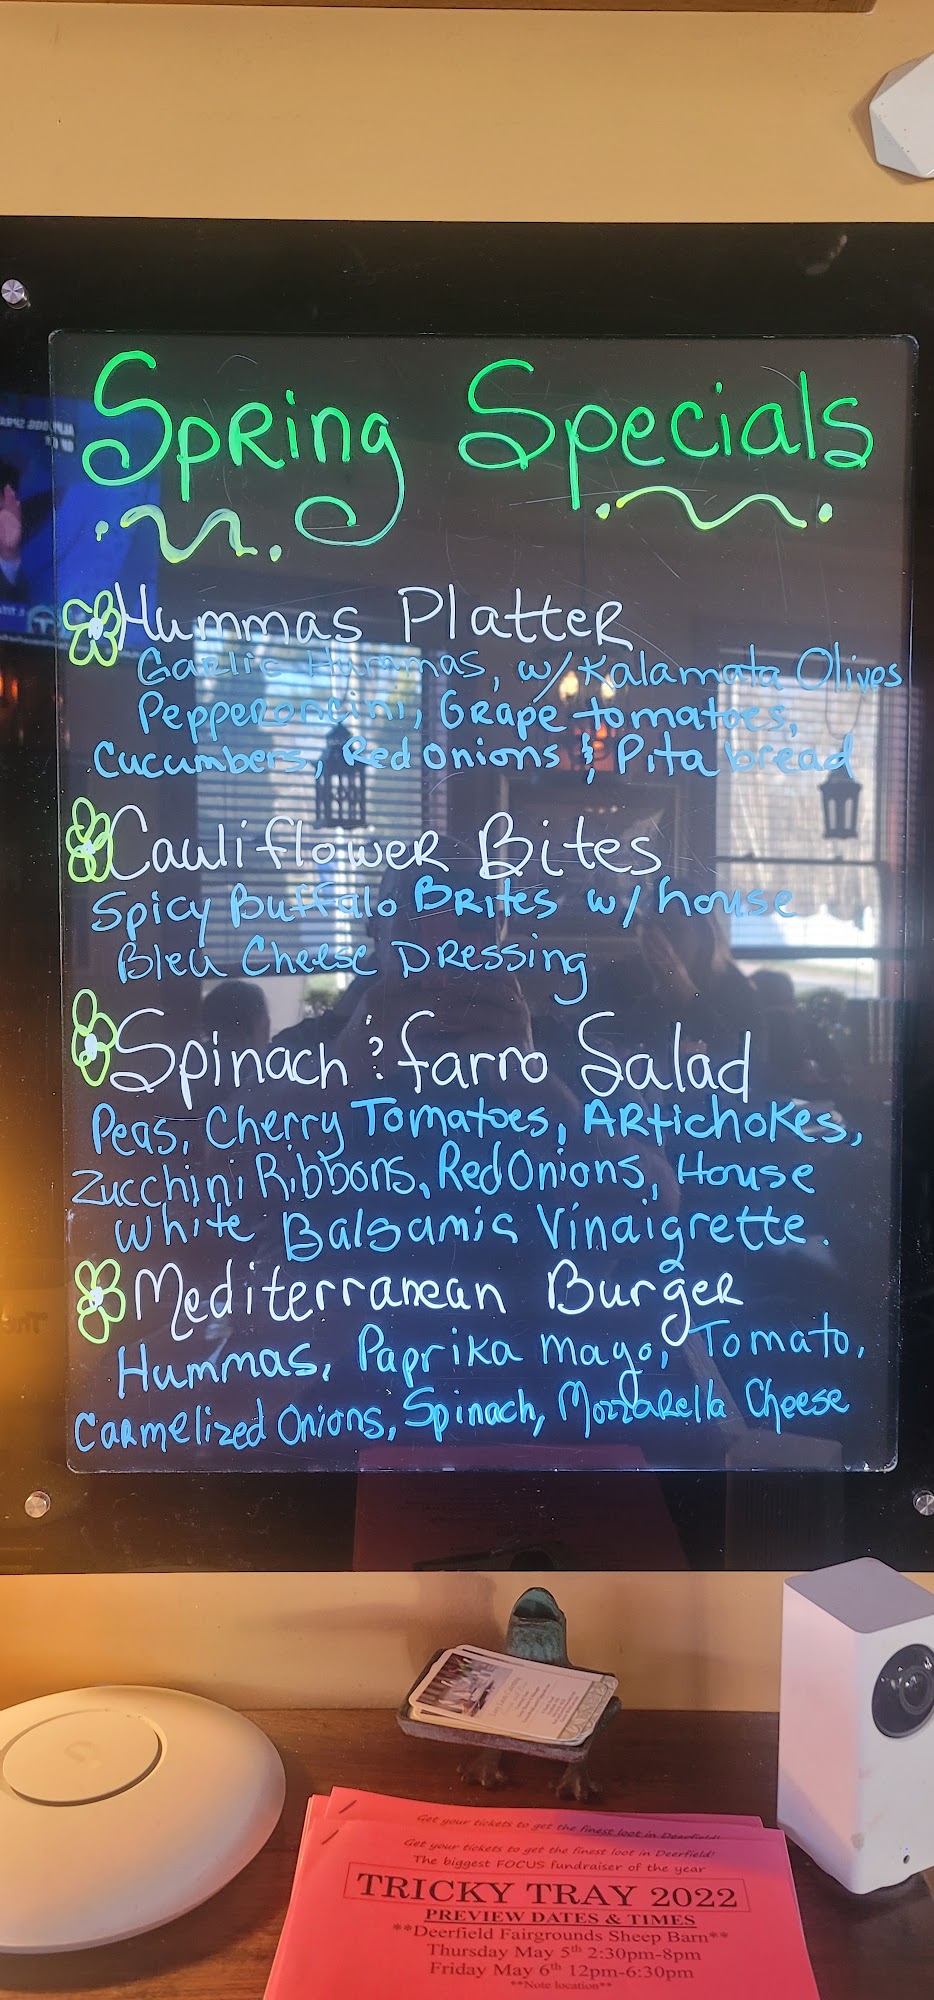 Spring Specials
Hummas Platter
Garlic Hummas, w/ Kalamata Olives
Pepperoncini, Grape tomatoes,
Cucumbers, Red Onions & Pita bread
Cauliflower Bites
Spicy Buffalo Brites w/ house
Bleu Cheese Dressing
Spinach & farro Salad
Peas, Cherry Tomatoes, Artichokes,
Zucchini Ribbons, Red Onions, House
White Balsamic Vinaigrette.
Mediterranean Burger
Hummas, Paprika mayo, Tomato,
Carmelized Onions, Spinach, Mozzarella Cheese
Get your tickets to get the finest loot in Deerfield!
Get your tickets to get the finest loot in Deerfield!
The biggest FOCUS fundraiser of the year
TRICKY TRAY 2022
PREVIEW DATES & TIMES
**Deerfield Fairgrounds Sheep Barn**
Thursday May 5th 2:30pm-8pm
Friday May 6th 12pm-6:30pm
**Note location**